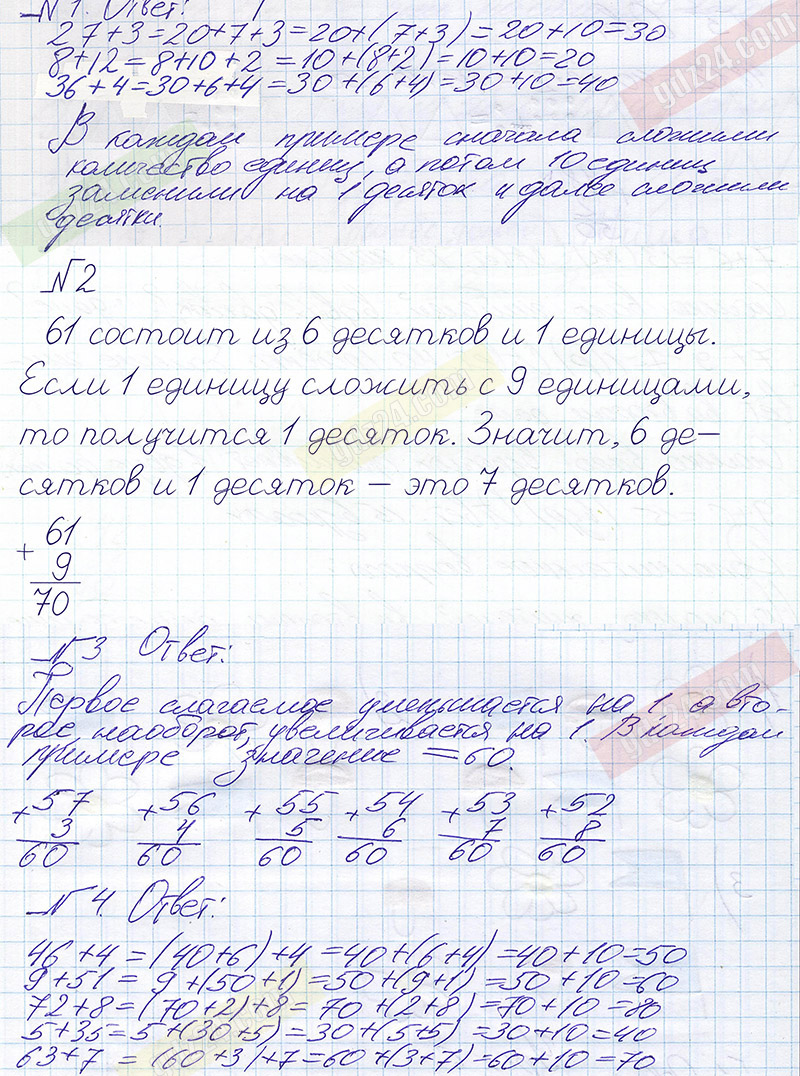 №1. Ответ:
27+3=20+7+3=20+(7+3)=20+10=30
8+12=8+10+2=10+(8+2)=10+10=20
36+4=30+6+4=30+(6+4)=30+10=40
В каждом примере сначала сложили
количество единиц, а потом 10 единиц
заменили на 1 десяток и далее сложили
десятки.
gdz24.com
№2
61 состоит из 6 десятков и 1 единицы.
Если 1 единицу сложить с 9 единицами,
то получится 1 десяток. Значит, 6 де-
сятков и 1 десяток – это 7 десятков.
gdz24.com
+ 61
9
70
№3 Ответ:
Первое слагаемое уменьшается на 1, а вто-
рое наоборот, увеличивается на 1. В каждом
примере значение = 60.
gdz24.com
+57 +56 +55 +54 +53 +52
3 4 5 6 7 8
60 60 60 60 60 60
№4. Ответ:
46+4=(40+6)+4=40+(6+4)=40+10=50
9+51=9+(50+1)=50+(9+1)=50+10=60
72+8=(70+2)+8=70+(2+8)=70+10=80
5+35=5+(30+5)=30+(5+5)=30+10=40
63+7=(60+3)+7=60+(3+7)=60+10=70